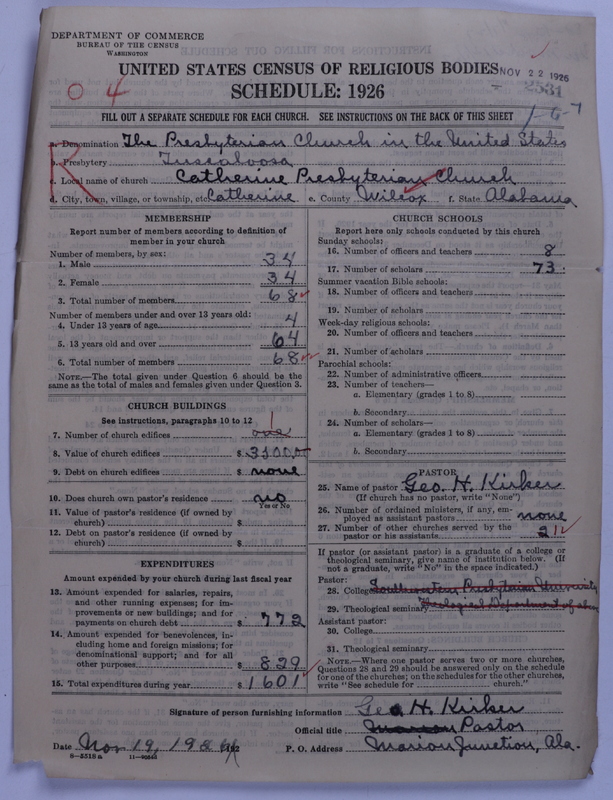 DEPARTMENT OF COMMERCE
BUREAU OF THE CENSUS
WASHINGTON
UNITED STATES CENSUS OF RELIGIOUS BODIES
NOV 22 1926
SCHEDULE: 1926
2531
FILL OUT A SEPARATE SCHEDULE FOR EACH CHURCH. SEE INSTRUCTIONS ON THE BACK OF THIS SHEET
0 4
1-6-7
R
a. Denomination The Presbyterian Church in the United States
b. Presbytery Tuscaloosa
c. Local name of church Catherine Presbyterian Church
d. City, town, village, or township, etc. Catherine e. County Wilcox f. State Alabama
MEMBERSHIP
Report number of members according to definition of member in your church
Number of members, by sex:
1. Male 34
2. Female 34
3. Total number of members 68
Number of members under and over 13 years old:
4. Under 13 years of age 4
5. 13 years old and over 64
6. Total number of members 68
NOTE.—The total given under Question 6 should be
same as the total of males and females given under Question 3.
CHURCH BUILDINGS
See instructions, paragraphs 10 to 12
7. Number of church edifices one
8. Value of church edifices $ 3500.00
9. Debt on church edifices $ none
10. Does church own pastor's residence no
Yes or No
11. Value of pastor's residence (if owned by
church) $
12. Debt on pastor's residence (if owned by
church) $
EXPENDITURES
Amount expended by your church during last fiscal year
13. Amount expended for salaries, repairs,
and other running expenses; for im-
provements or new buildings; and for
payments on church debt $ 772
14. Amount expended for benevolences, in-
cluding home and foreign missions; for
denominational support; and for all
other purposes $ 829
15. Total expenditures during year $ 1601
CHURCH SCHOOLS
Report here only schools conducted by this church
Sunday schools:
16. Number of officers and teachers 8
17. Number of scholars 73
Summer vacation Bible schools:
18. Number of officers and teachers
19. Number of scholars
Week-day religious schools:
20. Number of officers and teachers
21. Number of scholars
Parochial schools:
22. Number of administrative officers
23. Number of teachers—
a. Elementary (grades 1 to 8)
b. Secondary
24. Number of scholars—
a. Elementary (grades 1 to 8)
b. Secondary
PASTOR
25. Name of pastor Geo. H. Kirker
(If church has no pastor, write "None")
26. Number of ordained ministers, if any, em-
ployed as assistant pastors none
27. Number of other churches served by the
pastor or his assistants 2
If pastor (or assistant pastor) is a graduate of a college or
theological seminary, give name of institution below. (If
not a graduate, write "No" in the space indicated.)
Pastor:
28. College Southwestern Presbyterian University
29. Theological seminary Theological Department of above
Assistant pastor:
30. College
31. Theological seminary
NOTE.—Where one pastor serves two or more churches,
Questions 28 and 29 should be answered only on the schedule
for one of the churches; on the schedules for the other churches,
write "See schedule for church."
Signature of person furnishing information Geo. H. Kirker
Official title Marion Pastor
Date Nov 19, 1926 192
P. O. Address Marion Junction, Ala.
8-5518 a